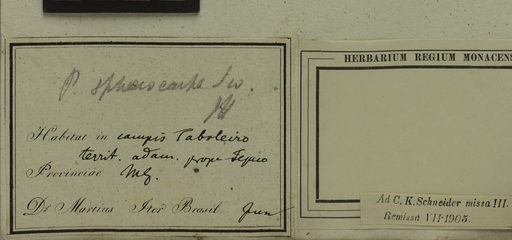 P. sphaerocarpa
Habitat in campis Taboleiro
territ. adam. prope Tejuco
Provinciae
Dr. Martius Iter Brasil.
HERBARIUM REGIUM MONACENS
Ad C. K. Schneider missa III.
Remissa VII-1905.